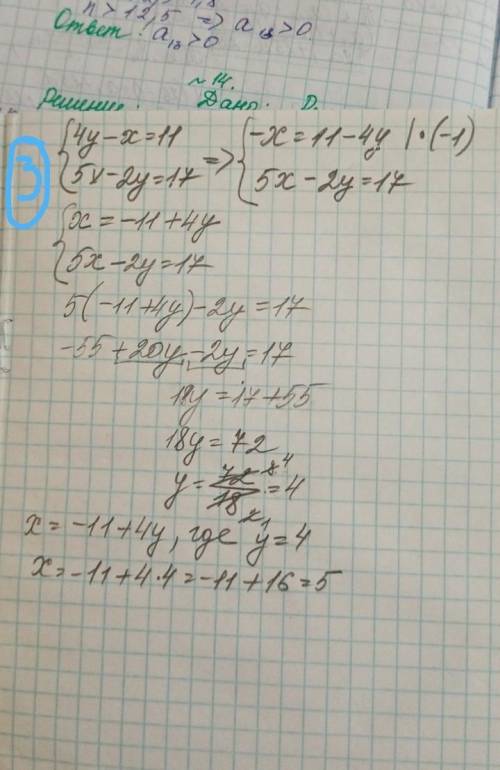 n > 12,5 => a₁₃ > 0.
Ответ: a₁₃ > 0
~ 14.
Решение: Дано: D.
3
{4y - x = 11 => {-x = 11 - 4y | · (-1)
{5x - 2y = 17 {5x - 2y = 17
{x = -11 + 4y
{5x - 2y = 17
5(-11 + 4y) - 2y = 17
-55 + 20y - 2y = 17
18y = 17 + 55
18y = 72
y = 72/18 = 4
x = -11 + 4y, где y = 4
x = -11 + 4 · 4 = -11 + 16 = 5